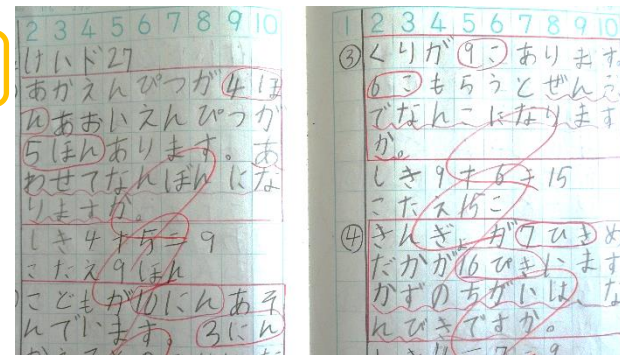 2 3 4 5 6 7 8 9 10
けいド27
あかえんぴつが4ほ
んあおいえんぴつが
5ほんあります。あ
わせてなんぼんにな
りますか。
しき4+5=9
こたえ9ほん
こどもが10にんあそ
んでいます。3にん
1 2 3 4 5 6 7 8 9 10
③くりが9こあります
6こもらうとぜんぶ
でなんこになります
か。
しき9+6=15
こたえ15こ
④きんぎょが7ひきめ
だかが16ぴきいます
かずのちがいは、な
んびきですか。